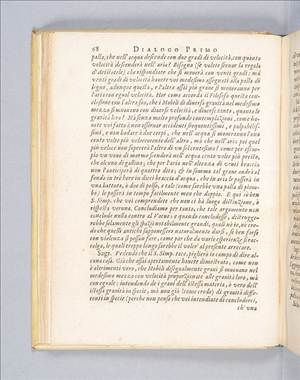 68 DIALOGO PRIMO
palla, che nell'acqua descende con due gradi di velocità, con quanta
velocità descenderà nell'aria? Bisogna (se volete servar la regola
d'Aristotele) che rispondiate che si moverà con venti gradi: mà
venti gradi di velocità havete voi medesimo assegnati alla palla di
legno, adunque questa, e l'altra assai più grave si moveranno per
l'aria con egual velocità. Hor come accorda il Filosofo questa con-
clusione con l'altra sua, che i Mobili di diversa gravità nel medesimo
mezzo si muovano con diverse velocità, e diverse tanto, quanto le
gravità loro? Mà senza molto profonde contemplazioni, come ha-
vete voi fatto à non osservar accidenti frequentissimi, e palpabilissi-
mi, e non badare à due corpi, che nell'acqua si moveranno l'uno
cento volte più velocemente dell'altro, mà che nell'aria poi quel
più veloce non supererà l'altro di un sol centesimo? come per esem-
pio un uovo di marmo scenderà nell'acqua cento volte più presto,
che alcuno di gallina; che per l'aria nell'altezza di venti braccia
non l'anticiperà di quattro dita; & in somma tal grave andrà al
fondo in tre hore in dieci braccia d'acqua, che in aria le passerà in
una battuta, ò due di polso, e tale (come sarebbe una palla di piom-
bo) le passerà in tempo facilmente men che doppio. E quì sò ben
S. Simp. che voi comprendete che non ci hà luogo distinzione, ò
risposta veruna. Concludiamo per tanto, che tale argumento non
conclude nulla contro al Vacuo; e quando concludesse, distrugge-
rebbe solamente gli spazii notabilmente grandi, quali nè io, nè cre-
do che quelli antichi supponessero naturalmente darsi, se ben forse
con violenza si possan fare, come par che da varie esperienze si rac-
colga, le quali troppo lungo sarebbe il voler al presente arrecare.
Sagr. Vedendo che il S. Simp. tace, piglierò io campo di dire al-
cuna cosa. Già che assai apertamente havete dimostrato, come non
è altrimenti vero, che Mobili disegualmente gravi si muovano nel
medesimo mezzo con velocità proporzionate alle gravità loro, mà
con eguale: intendendo de i gravi dell'istessa materia, ò vero dell'
istessa gravità in specie, mà non già (come credo) di gravità diffe-
renti in specie (perche non penso che voi intendiate di concluderci,
ch'una